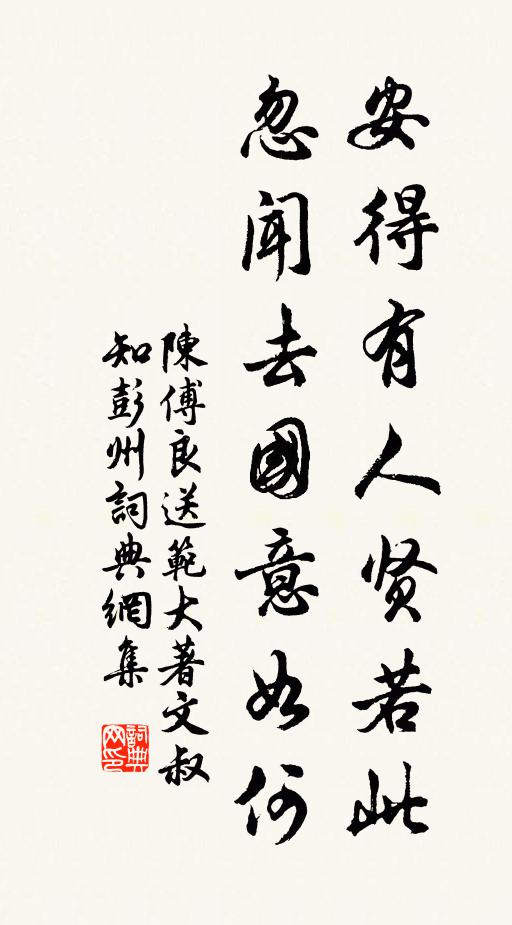 安得有人贤若此
忽聞去國意如何
陳傅良送範大著文叔
知彭州詞典網集
詞典
网印